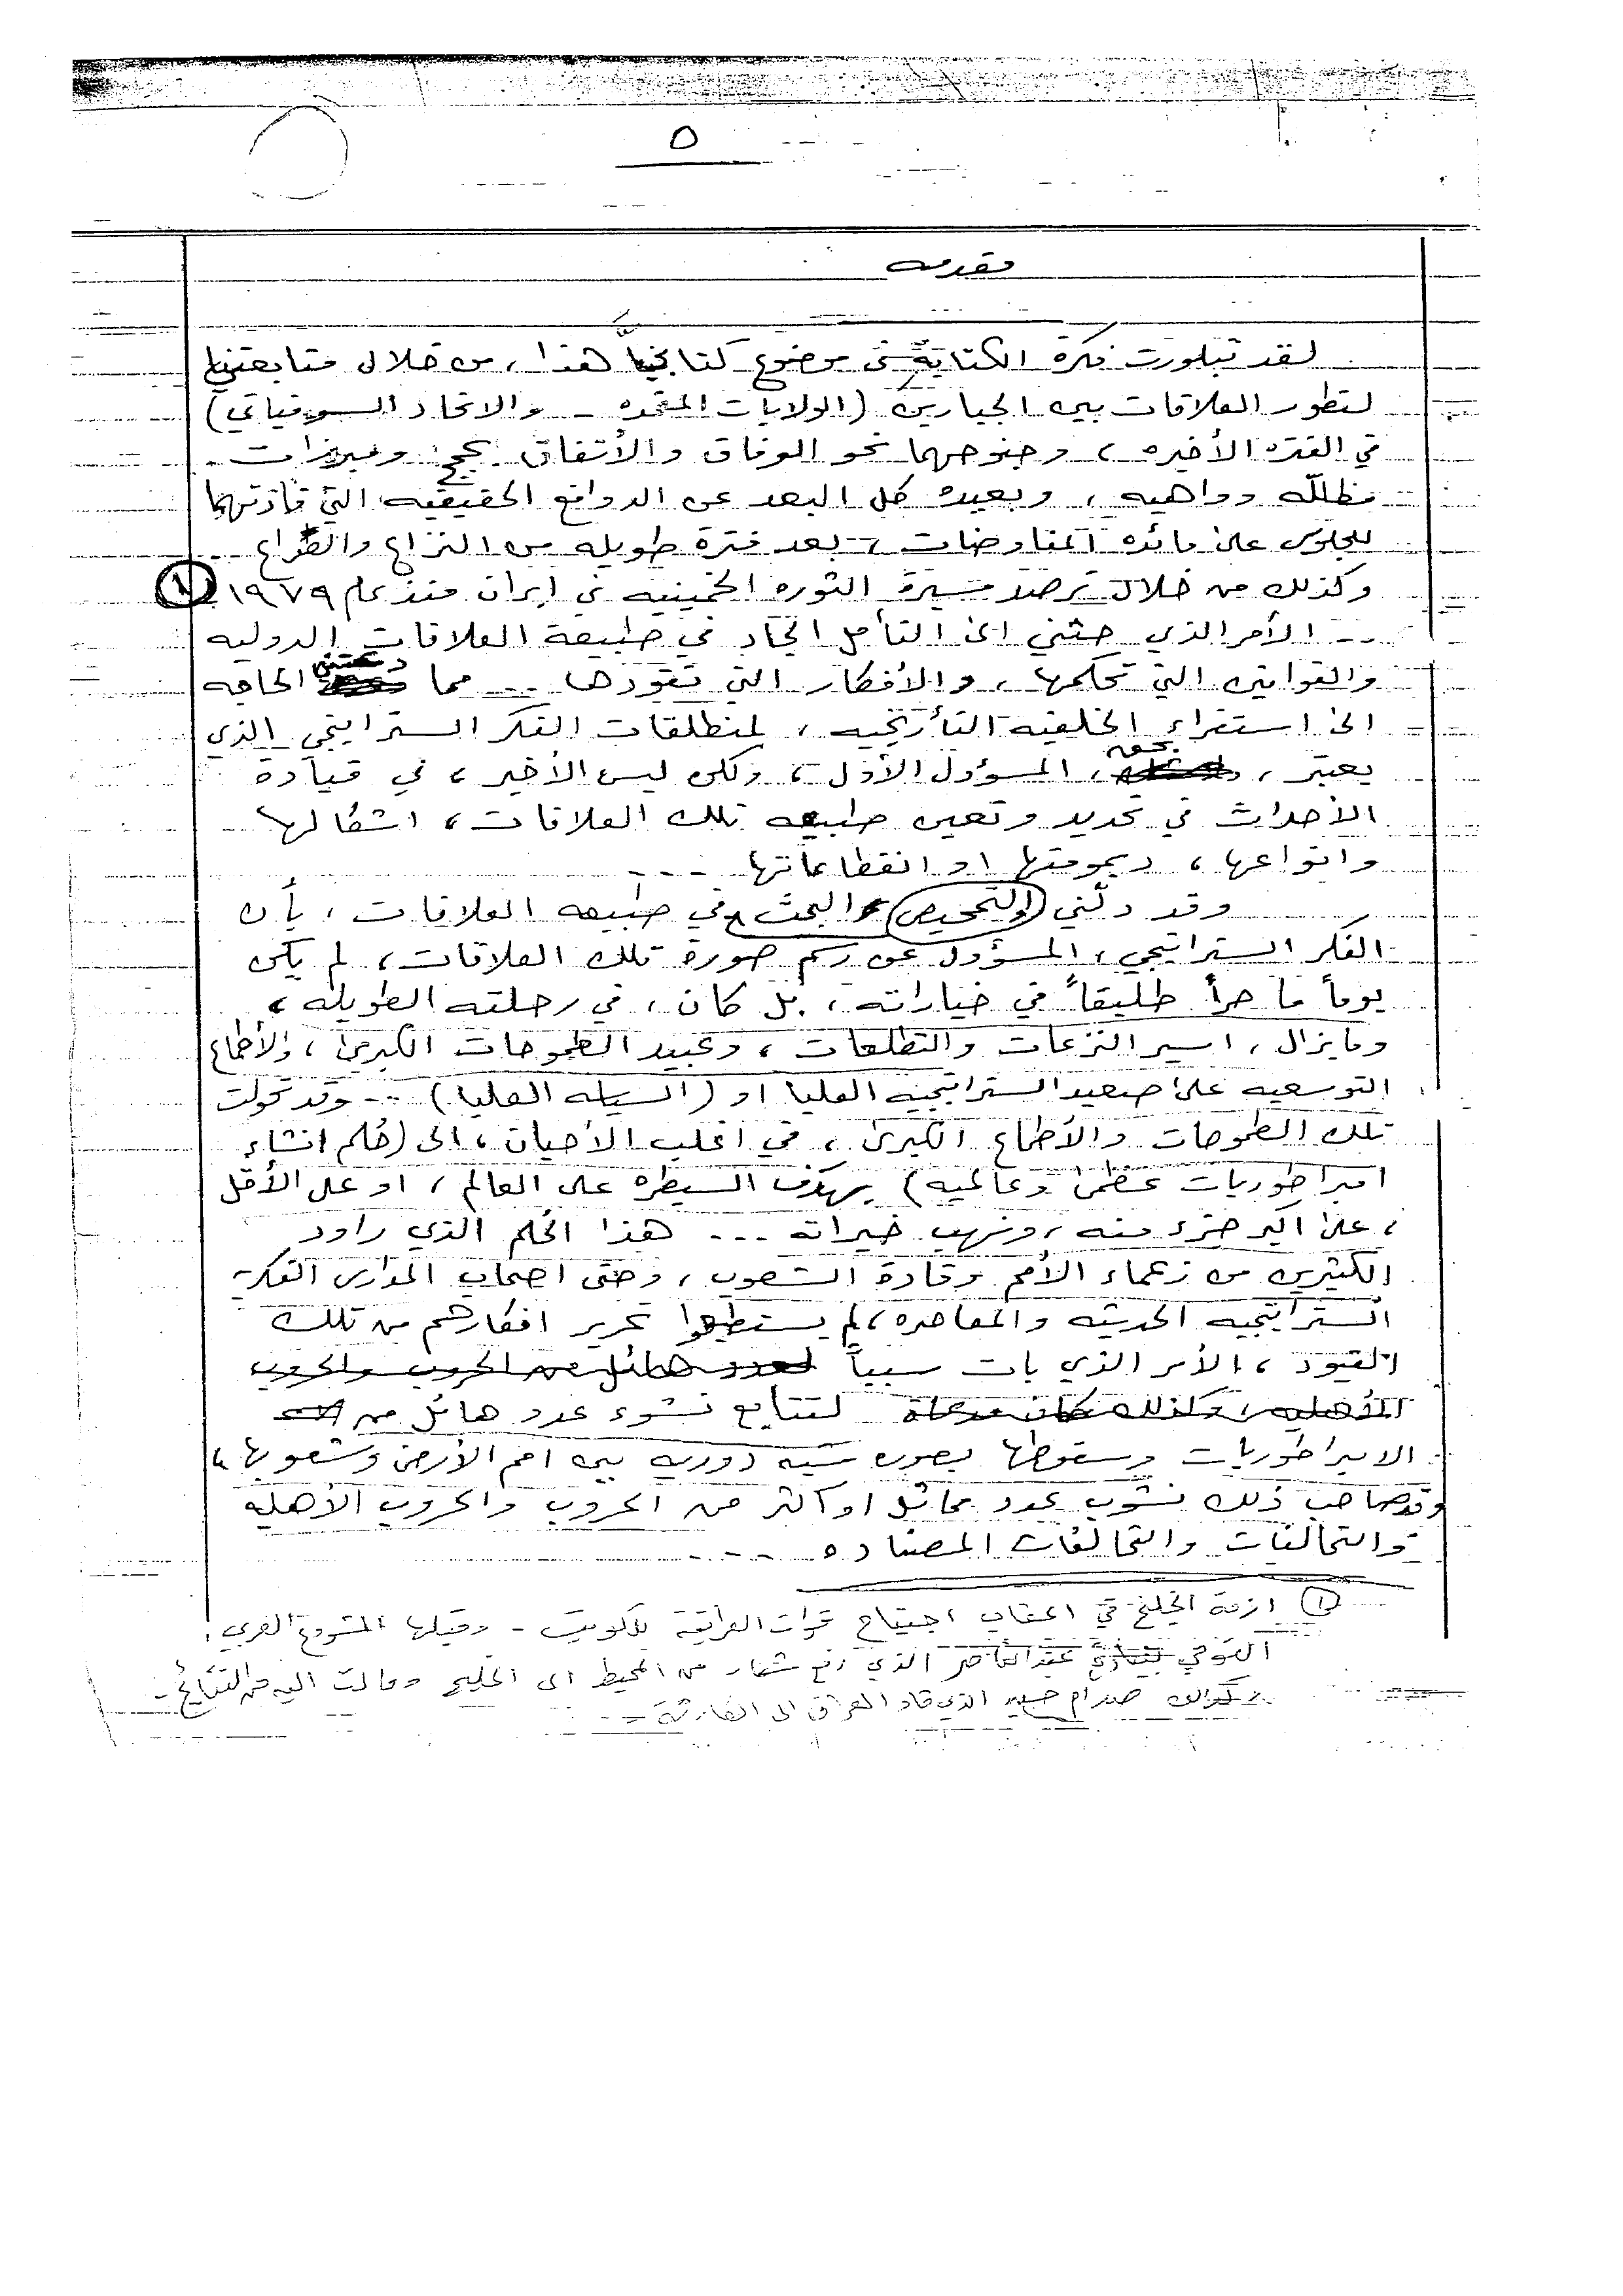 ٥
مقدمه
لقد تبلورت فكرة الكتابة في موضوع كتابي هذا، من خلال متابعتي
لتطور العلاقات بين الجبارين (الولايات المتحده - والاتحاد السوفياتي)
في الفتره الأخيره، وجنوحهما نحو الوفاق والأتفاق بحجج ومبررات
مظلله وواهيه، وبعيده كل البعد عن الدوافع الحقيقيه التي قادتهما
للجلوس على مائدة المفاوضات، بعد فترة طويله من النزاع والصراع
وكذلك من خلال ترصد مسيرة الثوره الخمينيه في ايران منذ عام ١٩٧٩ (١)
... الأمر الذي حثني الى التأمل الجاد في طبيعة العلاقات الدوليه
والقوانين التي تحكمها، والأفكار التي تقودها ... مما دعتني الحاجه
الى استقراء الخلفيه التأريخيه، لمنطلقات الفكر الستراتيجي الذي
يعتبر، بحق، المسؤول الأول، ولكن ليس الأخير، في قيادة
الأحداث في تحديد وتعين طبيعه تلك العلاقات، اشكالها
وانواعها، ديمومتها او انقطاعاتها ...
وقد دلّني البحث والتمحيص في طبيعه العلاقات، بأن
الفكر الستراتيجي، المسؤول عن رسم صورة تلك العلاقات، لم يكن
يوماً ما حراً طليقاً في خياراته، بل كان، في رحلته الطويله،
ومايزال، اسير النزعات والتطلعات، وعبيد الطموحات الكبرى، والأطماع
التوسعيه على صعيد الستراتيجيه العليا او (السياسه العليا) ... وقد تحولت
تلك الطموحات والأطماع الكبرى، في اغلب الأحيان، الى (حُلم انشاء
امبراطوريات عظمى وعالميه) بهدف السيطره على العالم، او على الأقل
، على اكبر جزء منه، ونهب خيراته ... هذا الحلم الذي راود
الكثيرين من زعماء الأمم وقادة الشعوب، وحتى اصحاب المدارس الفكرية
الستراتيجيه الحديثه والمعاصره، لم يستطيعوا تحرير افكارهم من تلك
القيود، الأمر الذي بات سبباً لعدد هائل من الحروب والحروب
الأهليه، وكذلك كان مدعاة لتتابع نشوء عدد هائل من
الامبراطوريات وسقوطها بصوره شبه دوريه بين امم الأرض وشعوبها،
وقد صاحب ذلك نشوب عدد مماثل او اكثر من الحروب والحروب الأهليه
والتحالفات والتحالفات المضاده ...
(١) ازمة الخليج في اعقاب اجتياح قوات العراقية للكويت - وقبلها المشروع العربي
القومي بقيادة عبد الناصر الذي رفع شعار من المحيط الى الخليج ومالت اليه من النتائج
وكذلك صدام حسين الذي قاد العراق الى الكارثة ...